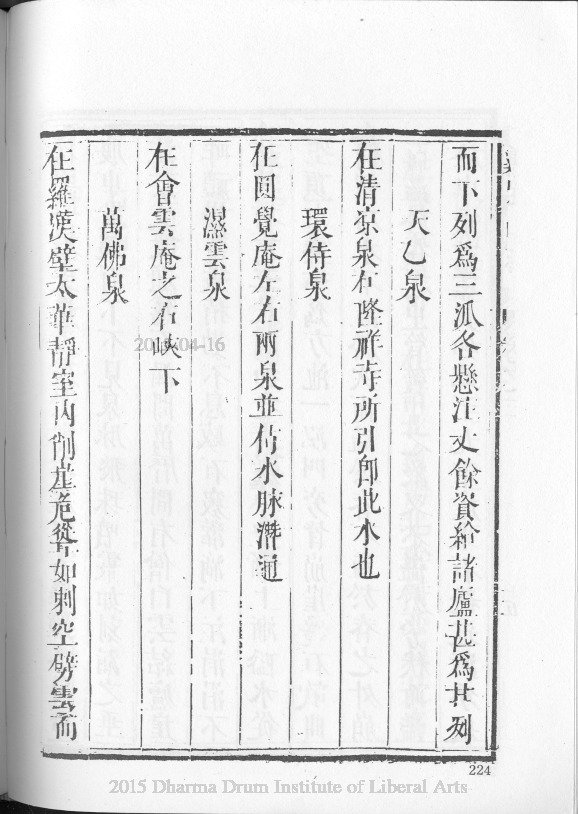 而下列爲三派各懸注丈餘資給諸廬甚爲甘列
天乙泉
在清凉泉右隆祥寺所引即此水也
環侍泉
在圓覺庵左右兩泉並侍水脉潛通
濕雲泉
在會雲庵之右峽下
萬佛泉
在羅漢壁太華靜室内削崖危聳如刺空劈雲而
224
2015 Dharma Drum Institute of Liberal Arts